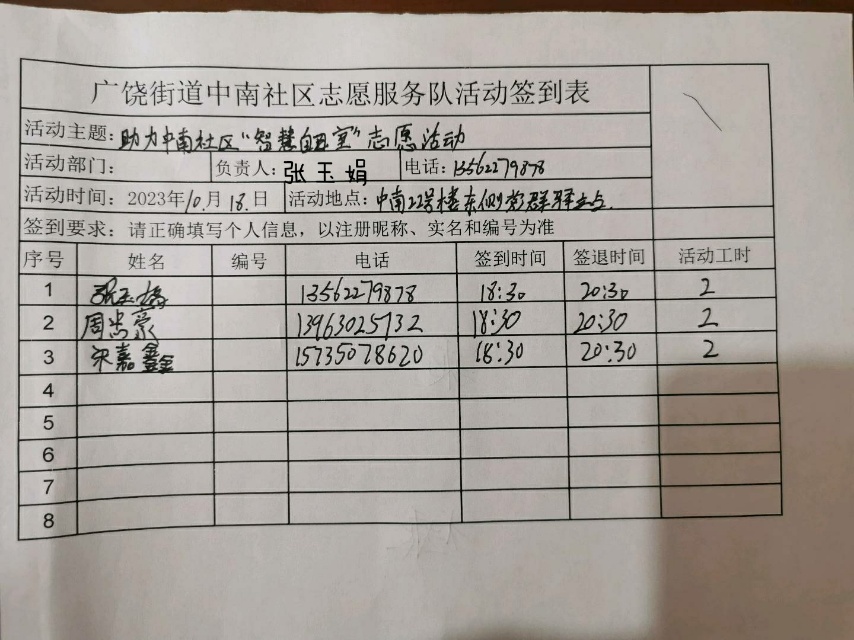 广饶街道中南社区志愿服务队活动签到表
活动主题：助力中南社区“智慧自习室”志愿活动
活动部门： 负责人：张玉娟 电话：13562279878
活动时间： 2023年10月18日 活动地点：中南22号楼东侧党群驿站
签到要求：请正确填写个人信息，以注册昵称、实名和编号为准
序号 姓名 编号 电话 签到时间 签退时间 活动工时
1 张玉娟 13562279878 18:30 20:30 2
2 周忠豪 13963025732 18:30 20:30 2
3 宋嘉鑫 15735078620 18:30 20:30 2
4
5
6
7
8